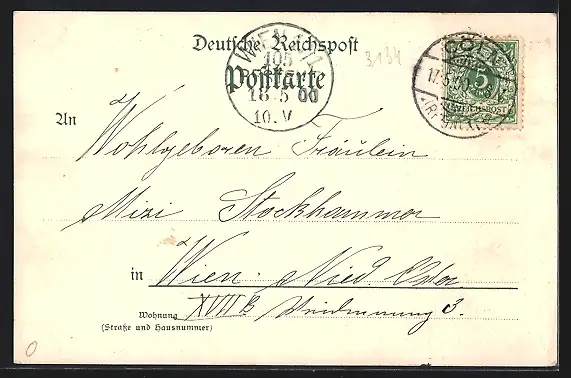 Deutsche Reichspost
Postkarte
WIEN 1/1
105
18 5 00
10. V
3134
5
REICHSPOST
An Wohlgeboren Fräulein
Mizi Stockhammer
in Wien. Nied. Öster
Wohnung XVIII B 3.
(Straße und Hausnummer)
0